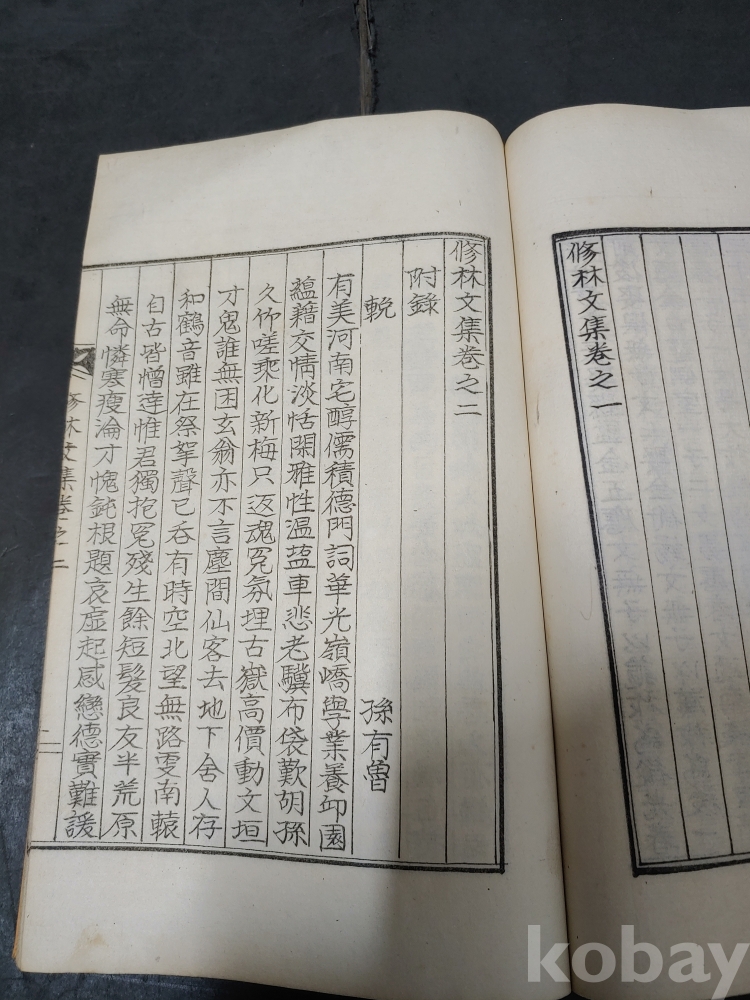 修林文集卷之一
修林文集卷之二
附錄
輓
孫有曾
有美河南宅醇儒積德門詞華光嶺嶠學業養邱園
蘊藉交情淡恬閑雅性溫盐車悲老驥布袋歎胡孫
久竹嗟乘化新梅只返魂冤氛埋古嶽高價動文垣
才鬼誰無困玄翁亦不言塵間仙客去地下舍人存
和鶴音雖在祭挐聲已呑有時空北望無路更南轅
自古皆憎達惟君獨抱冤殘生餘短髮良友半荒原
無命憐寒瘦淪才愧鈍根題哀虛起感戀德實難諼
修林文集卷之二
二
kobay